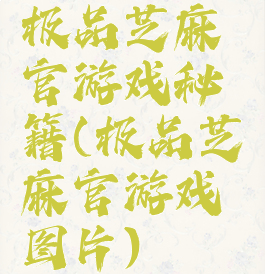 极品芝麻
官游戏秘
籍(极品芝
麻官游戏
图片)